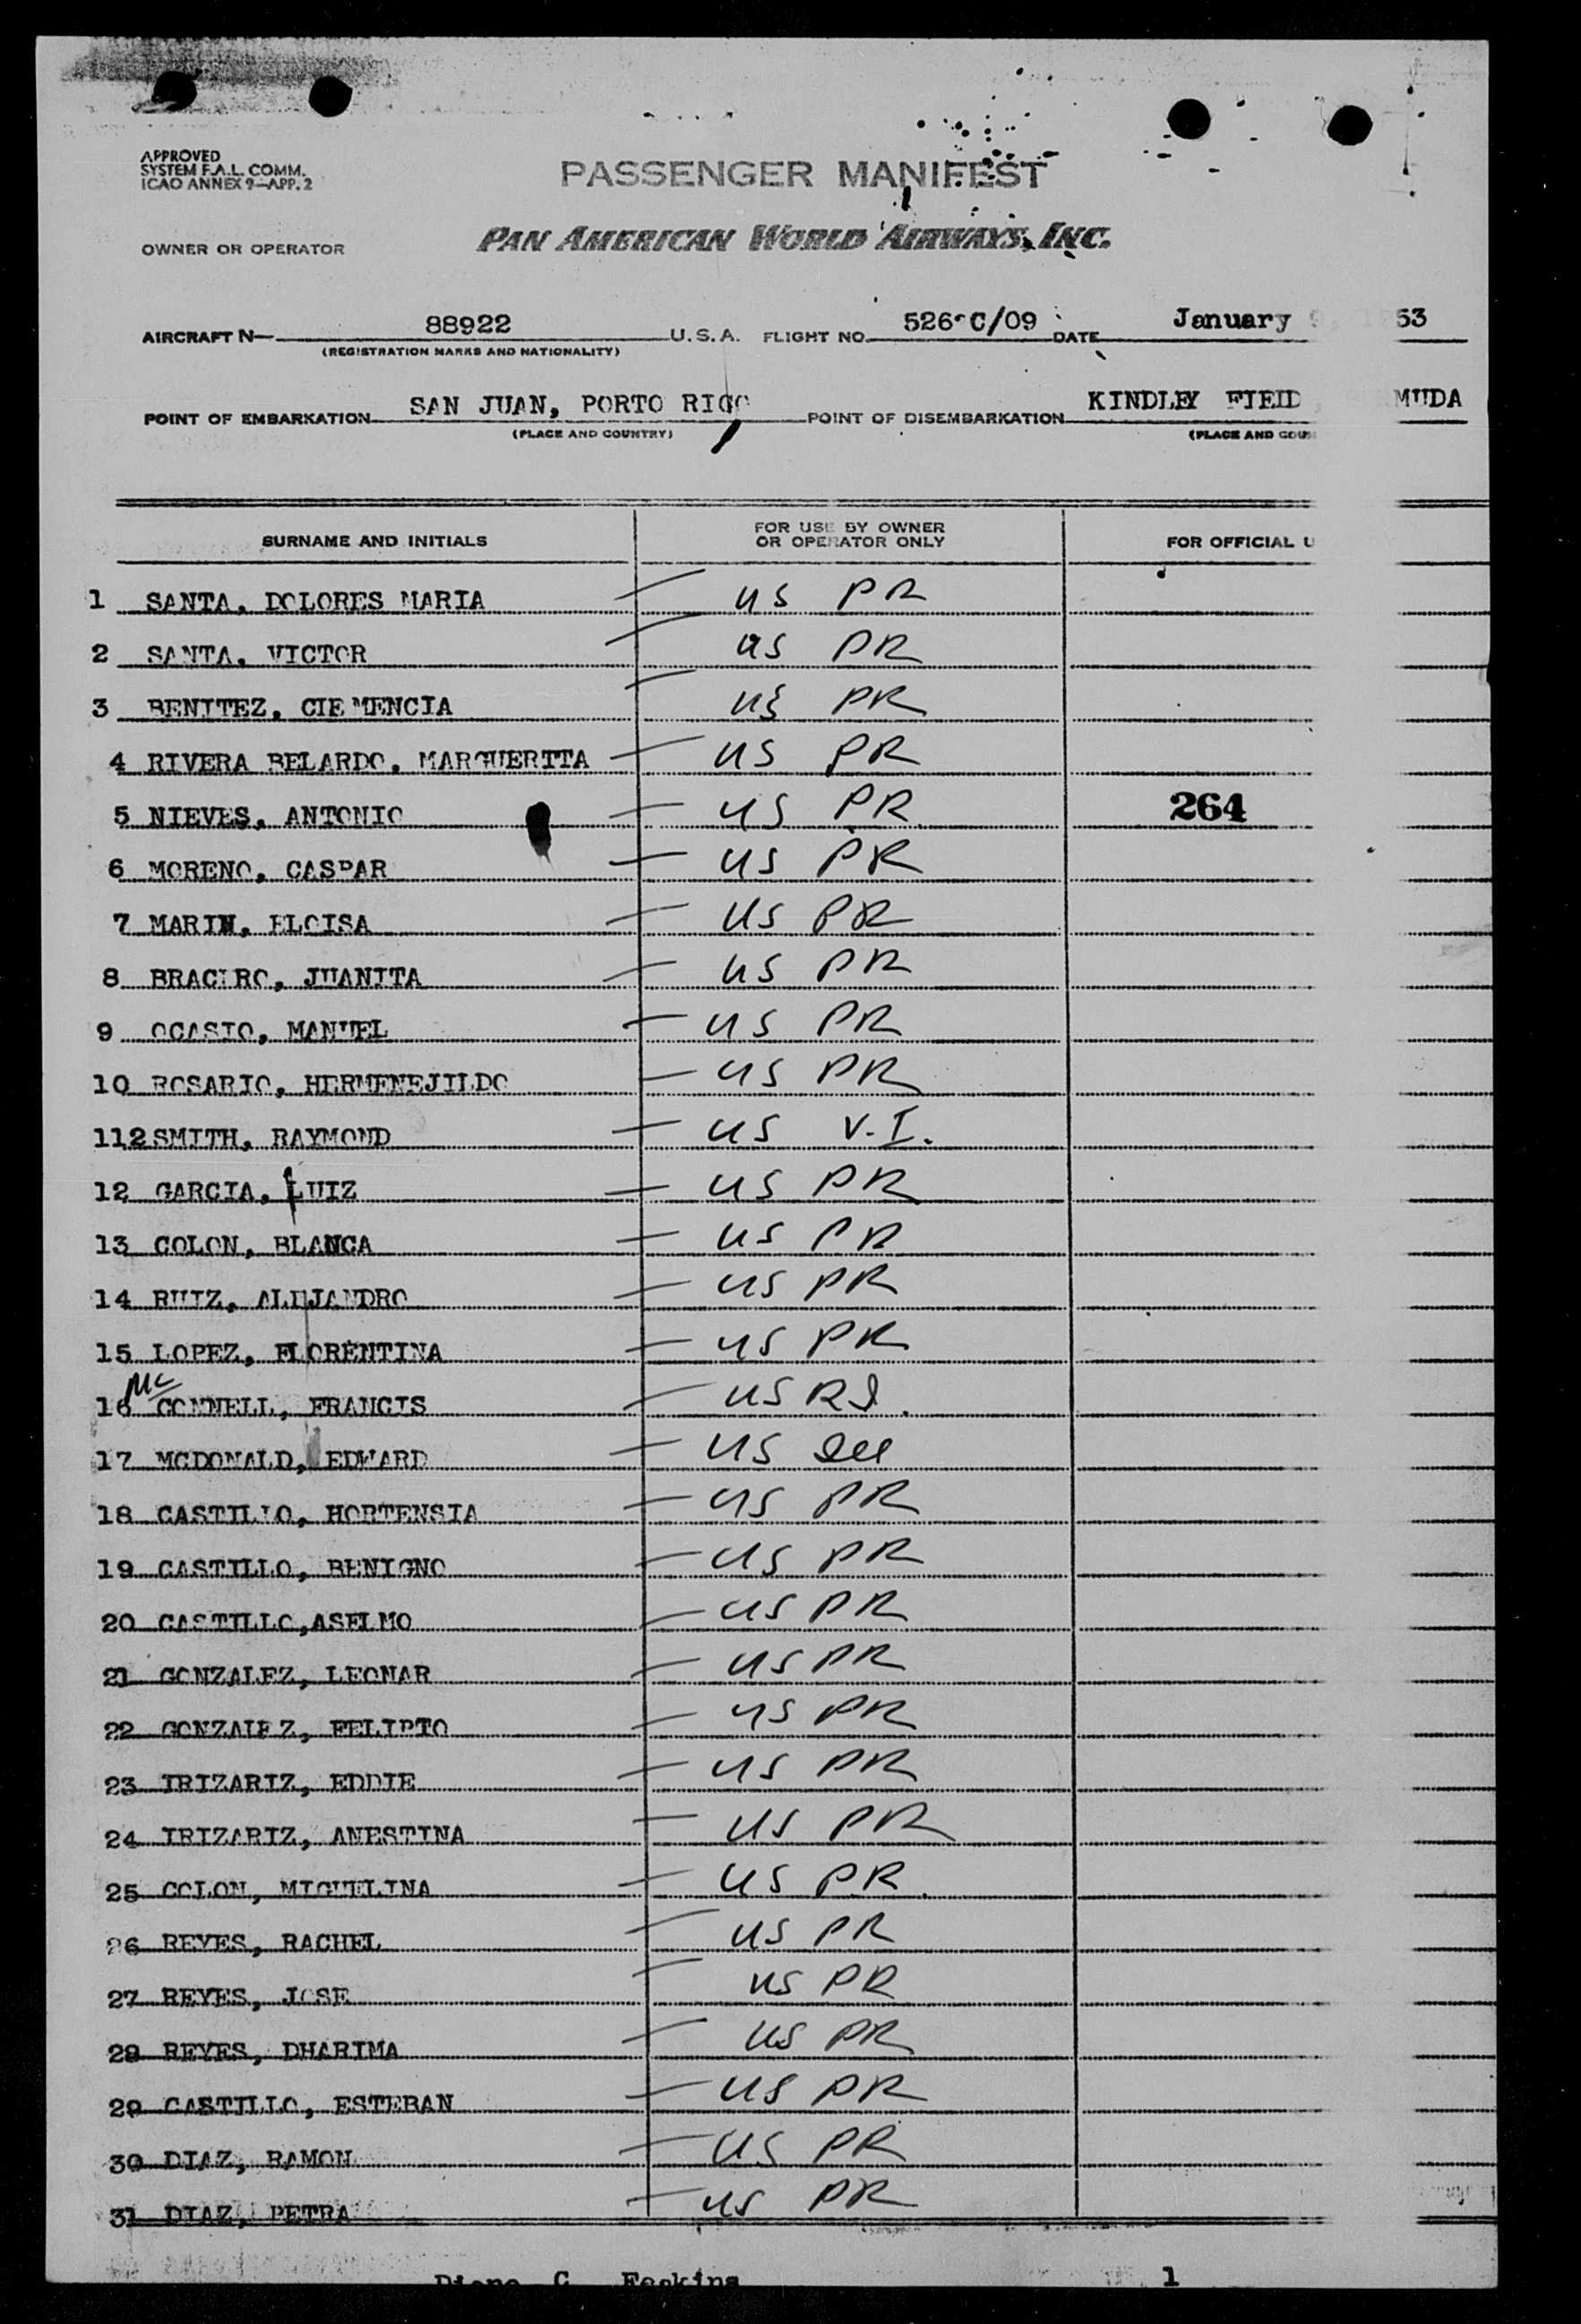 APPROVED
SYSTEM F.A.L. COMM.
ICAO ANNEX 9—APP. 2
PASSENGER MANIFEST
OWNER OR OPERATOR PAN AMERICAN WORLD AIRWAYS, INC.
AIRCRAFT N— 88922 U.S.A. FLIGHT NO. 526 C/09 DATE January 9, 1953
(REGISTRATION MARKS AND NATIONALITY)
POINT OF EMBARKATION SAN JUAN, PORTO RICO POINT OF DISEMBARKATION KINDLEY FIELD
(PLACE AND COUNTRY) (PLACE AND
SURNAME AND INITIALS FOR USE BY OWNER OR OPERATOR ONLY FOR OFFICIAL U
1 SANTA, DOLORES MARIA US PR
2 SANTA, VICTOR US PR
3 BENITEZ, CLEMENCIA US PR
4 RIVERA BELARDO, MARGUERITA US PR
5 NIEVES, ANTONIO US PR 264
6 MORENO, CASPAR US PR
7 MARIN, ELOISA US PR
8 JUANITA US PR
9 OCASIO, MANUEL US PR
10 ROSARIO, HERMENEJILDO US PR
112 SMITH, RAYMOND US V.I.
12 GARCIA, LUIZ US PR
13 COLON, BLANCA US PR
14 RUIZ, ALEJANDRO US PR
15 LOPEZ, FLORENTINA US PR
16 Mc CONNELL, FRANCIS US RI
17 MCDONALD, EDWARD US Ill
18 CASTILLO, HORTENSIA US PR
19 CASTILLO, BENIGNO US PR
20 CASTILLO,ASELMO US PR
21 GONZALEZ, LEONAR US PR
22 GONZALEZ, FELIPTO US PR
23 IRIZARIZ, EDDIE US PR
24 IRIZARIZ, ANESTINA US PR
25 COLON, MIGUELINA US PR
26 REYES, RACHEL US PR
27 REYES, JOSE US PR
28 REYES, DHARIMA US PR
29 CASTILLO, ESTEBAN US PR
30 DIAZ, RAMON US PR
31 DIAZ, PETRA US PR
C. 1